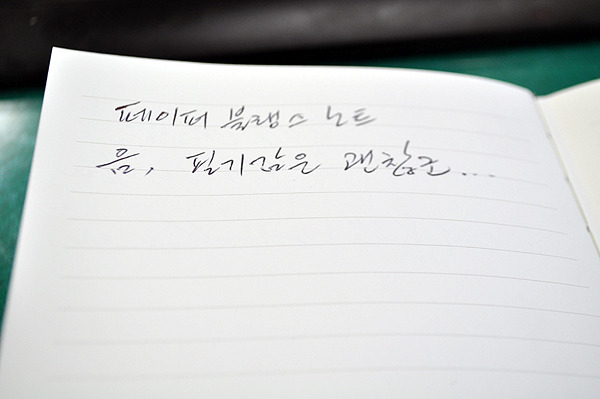 페이퍼 블랭스 노트
음, 필기감은 괜찮군...